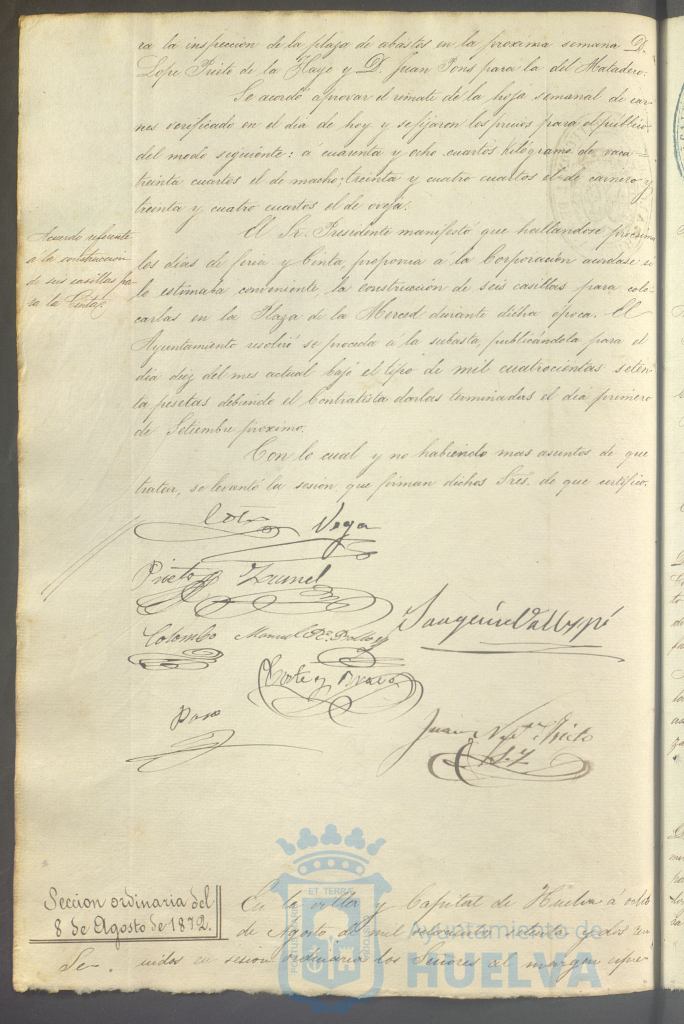 ra la inspeccion de la plaza de abastos en la proxima semana D.
Lope Prieto de la Haye y D. Juan Pons para la del Matadero.
Se acordó aprovar el remate de la hoja semanal de car-
nes verificado en el dia de hoy y se fijaron los precios para el publico
del modo siguiente: á cuarenta y ocho cuartos kilógramo de vaca
treinta cuartos el de macho; treinta y cuatro cuartos el de carnero y
treinta y cuatro cuartos el de oveja.
Acuerdo referente
a la construccion
de seis casillas pa-
ra la Cinta
El Sr. Presidente manifestó que hallandose próximos
los dias de feria y Cinta, proponia a la Corporacion acordase si
lo estimaba conveniente, la construccion de seis casillas para colo-
carlas en la Plaza de la Merced durante dicha época. El
Ayuntamiento resolvió se proceda a la subasta, publicándola para el
dia diez del mes actual bajo el tipo de mil cuatrocientas seten-
ta pesetas debiendo el Contratista darlas terminadas el dia primero
de Setiembre proximo.
Con lo cual y no habiendo mas asuntos de que
tratar, se levantó la sesion que firman dichos Sres. de que certifico.
Vega
Prieto
Colombo Manuel
Juan Prieto
Seccion ordinaria del
8 de Agosto de 1872.
En la villa y Capital de Huelva á ocho
de Agosto de mil ochocientos setenta y dos reu-
Se-
nidos en sesion ordinaria los Señores al margen espre-
ET TERRÆ
Ayuntamiento de
HUELVA